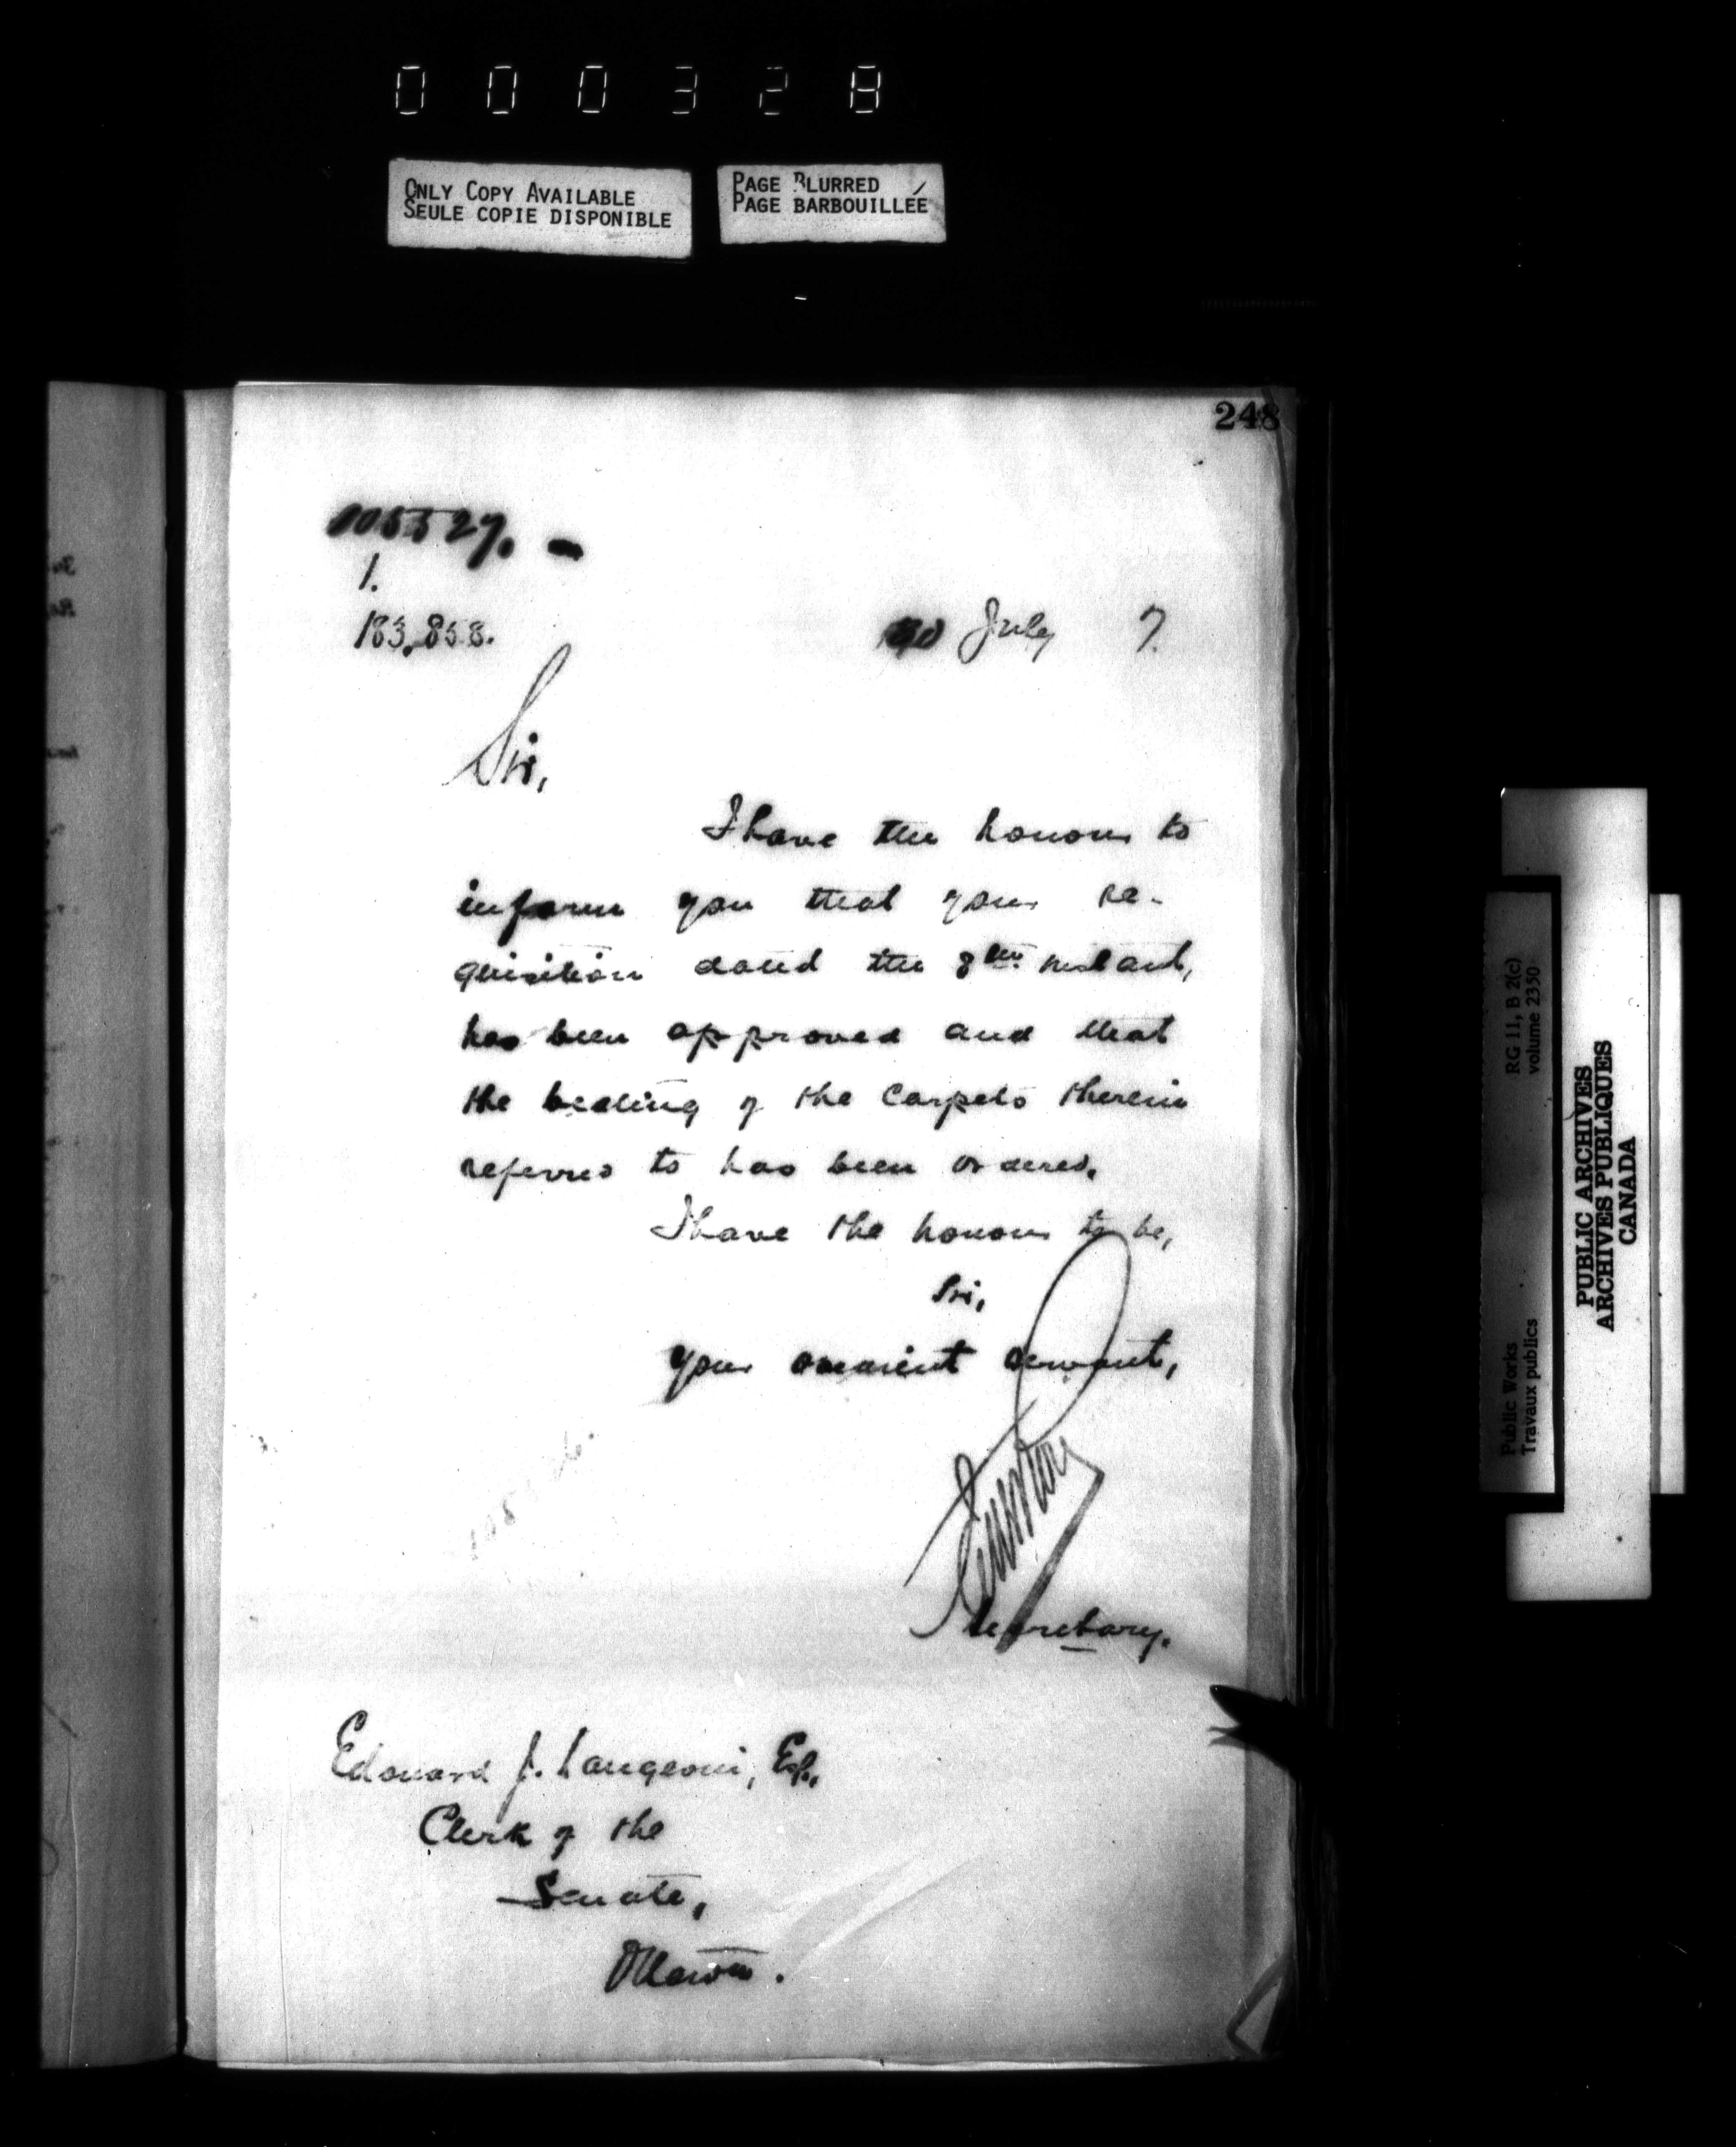 000328
ONLY COPY AVAILABLE
SEULE COPIE DISPONIBLE
PAGE BLURRED
PAGE BARBOUILLÉE
248
105527.
1.
183,858.
July 7.
Sir,
I have the honour to
inform you that your re-
quisition dated the 8th instant,
has been approved and that
the beating of the carpets therein
referred to has been ordered.
I have the honour to be,
Sir,
Your obedient servant,
Secretary.
Edouard J. Langevin, Esq.,
Clerk of the
Senate,
Ottawa.
RG 11, B 2(c)
volume 2350
Public Works
Travaux publics
PUBLIC ARCHIVES
ARCHIVES PUBLIQUES
CANADA